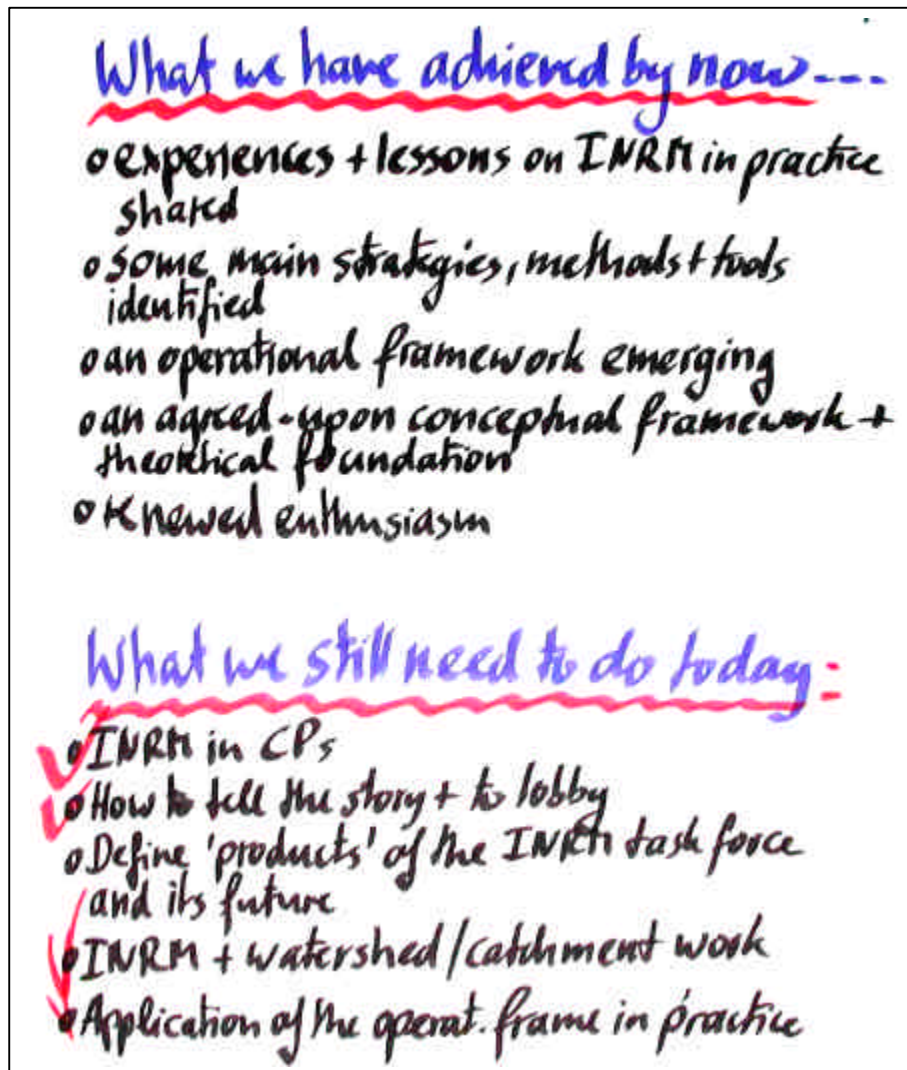 What we have achieved by now---
o experiences + lessons on INRM in practice
shared
o some main strategies, methods + tools
identified
o an operational framework emerging
o an agreed-upon conceptual framework +
theoretical foundation
o renewed enthusiasm
What we still need to do today:
o INRM in CPs
o How to tell the story + to lobby
o Define 'products' of the INRM task force
and its future
o INRM + watershed/catchment work
o Application of the operat. frame in practice